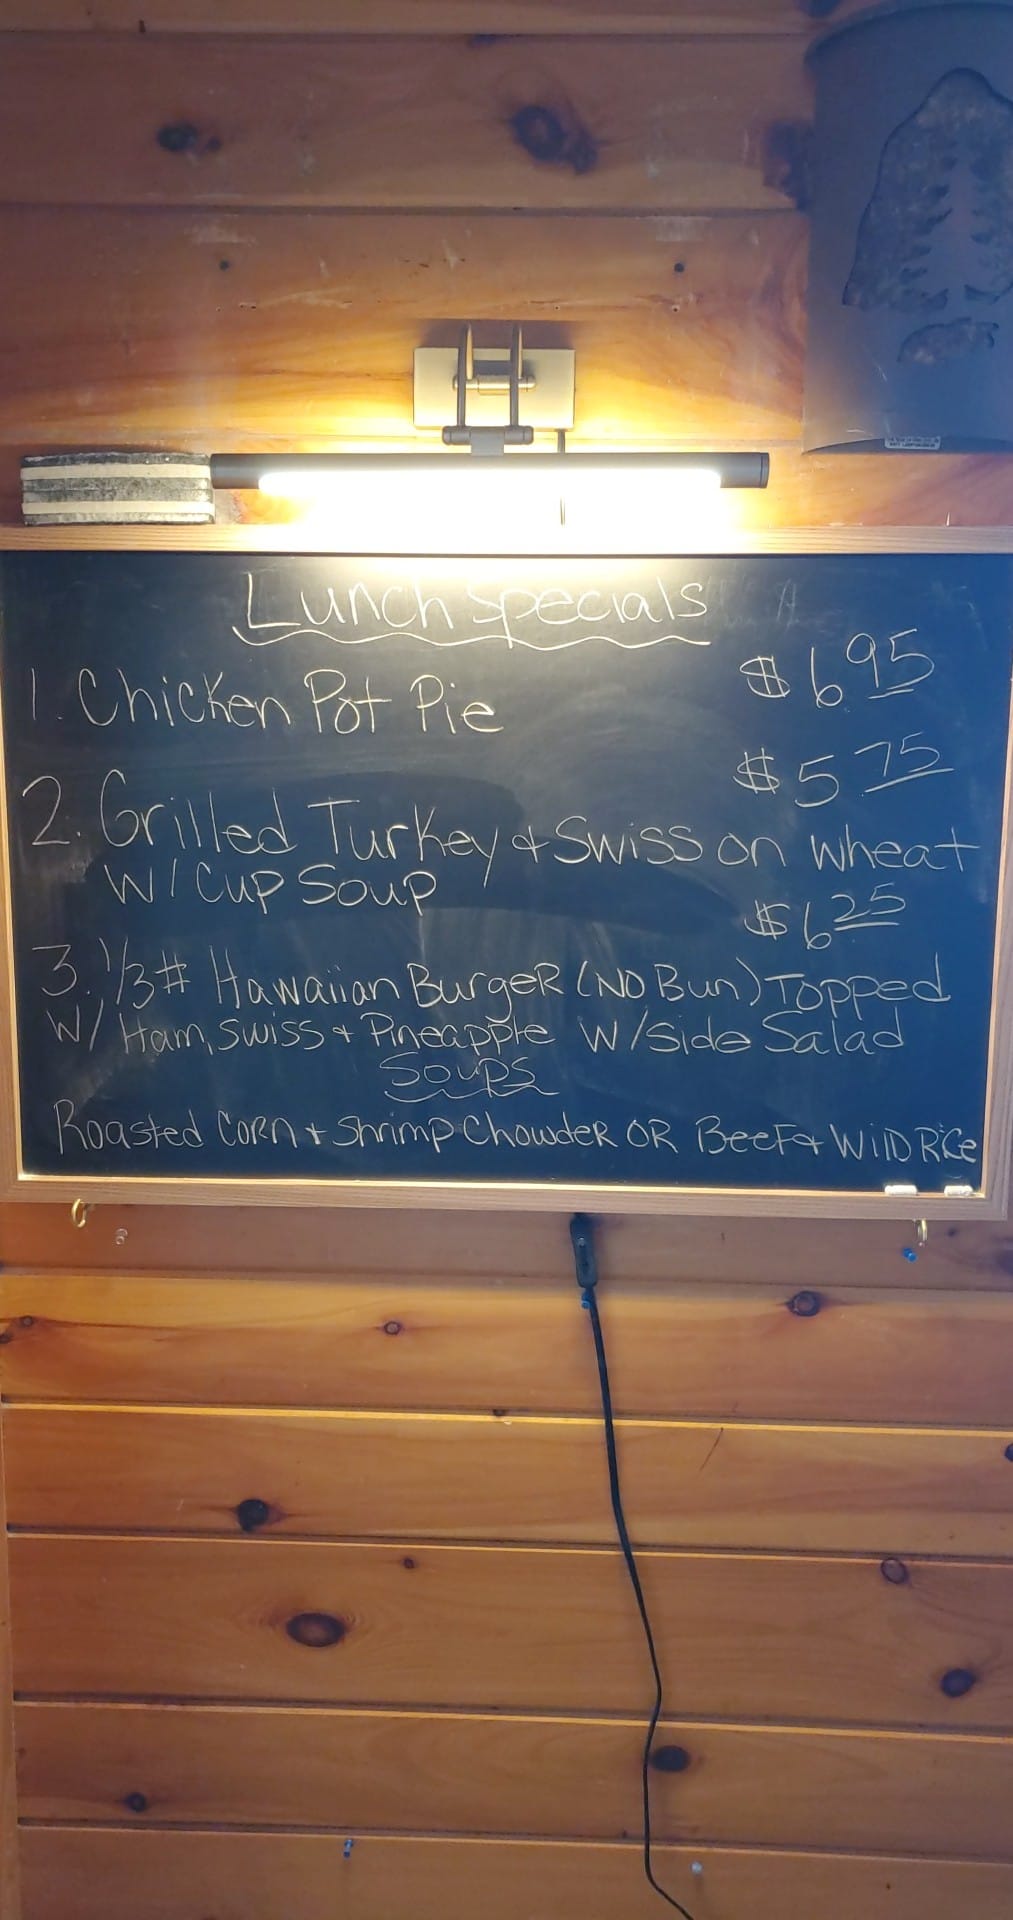 Lunch Specials
1. Chicken Pot Pie $6.95
$5 75
2. Grilled Turkey + Swiss on wheat
W/ Cup Soup
$6 25
3. 1/3# Hawaiian Burger (No Bun) Topped
W/ Ham, Swiss + Pineapple W/Side Salad
Soups
Roasted Corn + Shrimp Chowder OR Beef + Wild Rice